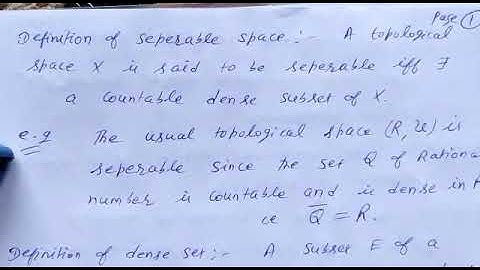 Page 1
Definition of seperable space :- A topological
space X is said to be seperable iff ∃
a countable dense subset of X.
e.g The usual topological space (R, U) is
seperable since the set Q of Rationa
number is countable and is dense in
ie Q̅ = R.
Definition of dense set :- A subset E of a